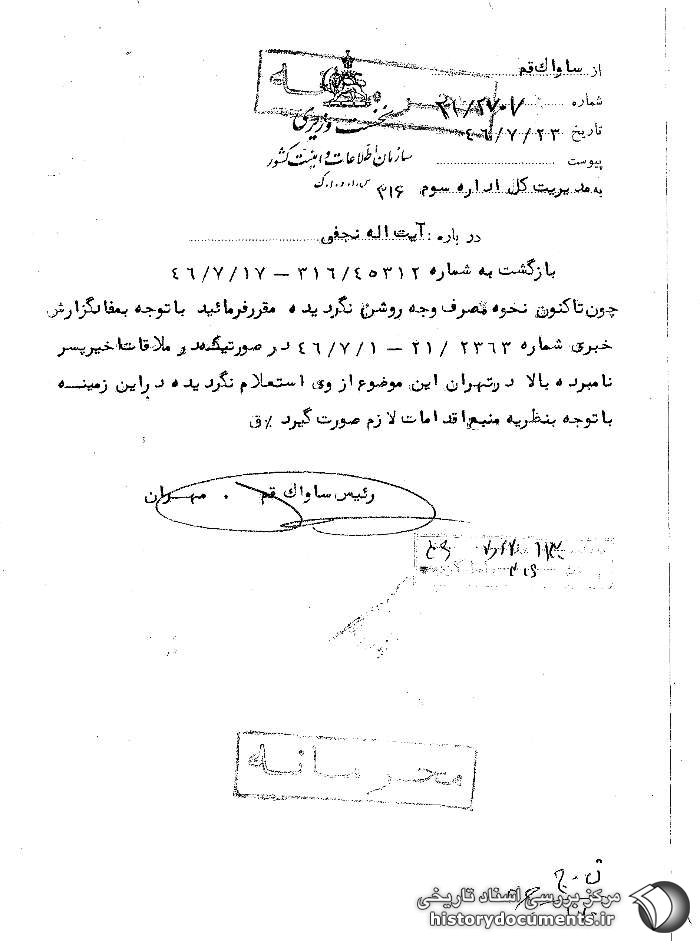 از ساواك قم
محرمانه
شماره ۲۱/۲۷۰۷
نخست وزیری
تاریخ ۴۶/۷/۲۳
سازمان اطلاعات و امنیت کشور
پیوست
به مدیریت کل اداره سوم ۳۱۶
س.ا.و.ا.ك
درباره : آیت اله نجفی
بازگشت به شماره ۳۱۶/۴۵۳۱۲ – ۴۶/۷/۱۷
چون تاکنون نحوه مصرف وجه روشن نگردیده مقرر فرمائید با توجه بمفاد گزارش
خبری شماره ۲۳۶۳ /۲۱ – ۴۶/۷/۱ در صورتیکه در ملاقات اخیر پسر
نامبرده بالا در تهران این موضوع از وی استعلام نگردیده در این زمینه
با توجه بنظریه منبع اقدامات لازم صورت گیرد /ق
رئیس ساواك قم . مهران
محرمانه
مرکز بررسی اسناد تاریخی
historydocuments.ir